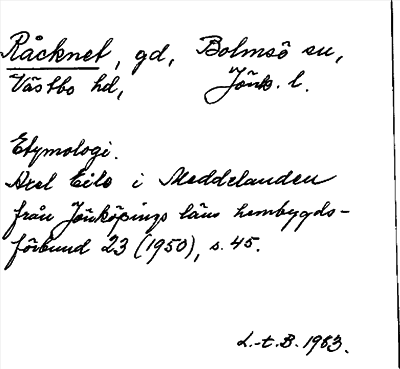 Råcknet, gd, Bolmsö sn,
Västbo hd, Jönk. l.
Etymologi.
Axel Eilo i Meddelanden
från Jönköpings läns hembygds-
förbund 23 (1950), s. 45.
L.-t. B. 1963.